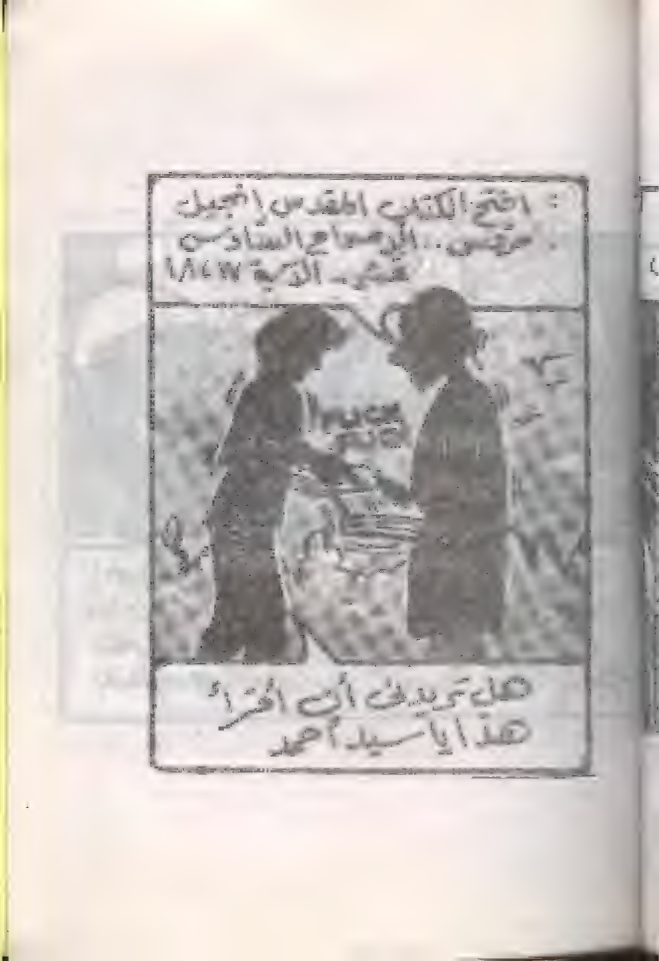 : افتح الكتاب المقدس إنجيل
مرقس .. الإصحاح السادس
عشر .. الآية
هل تريدنى أن أقرأ
هذا يا سيد أحمد